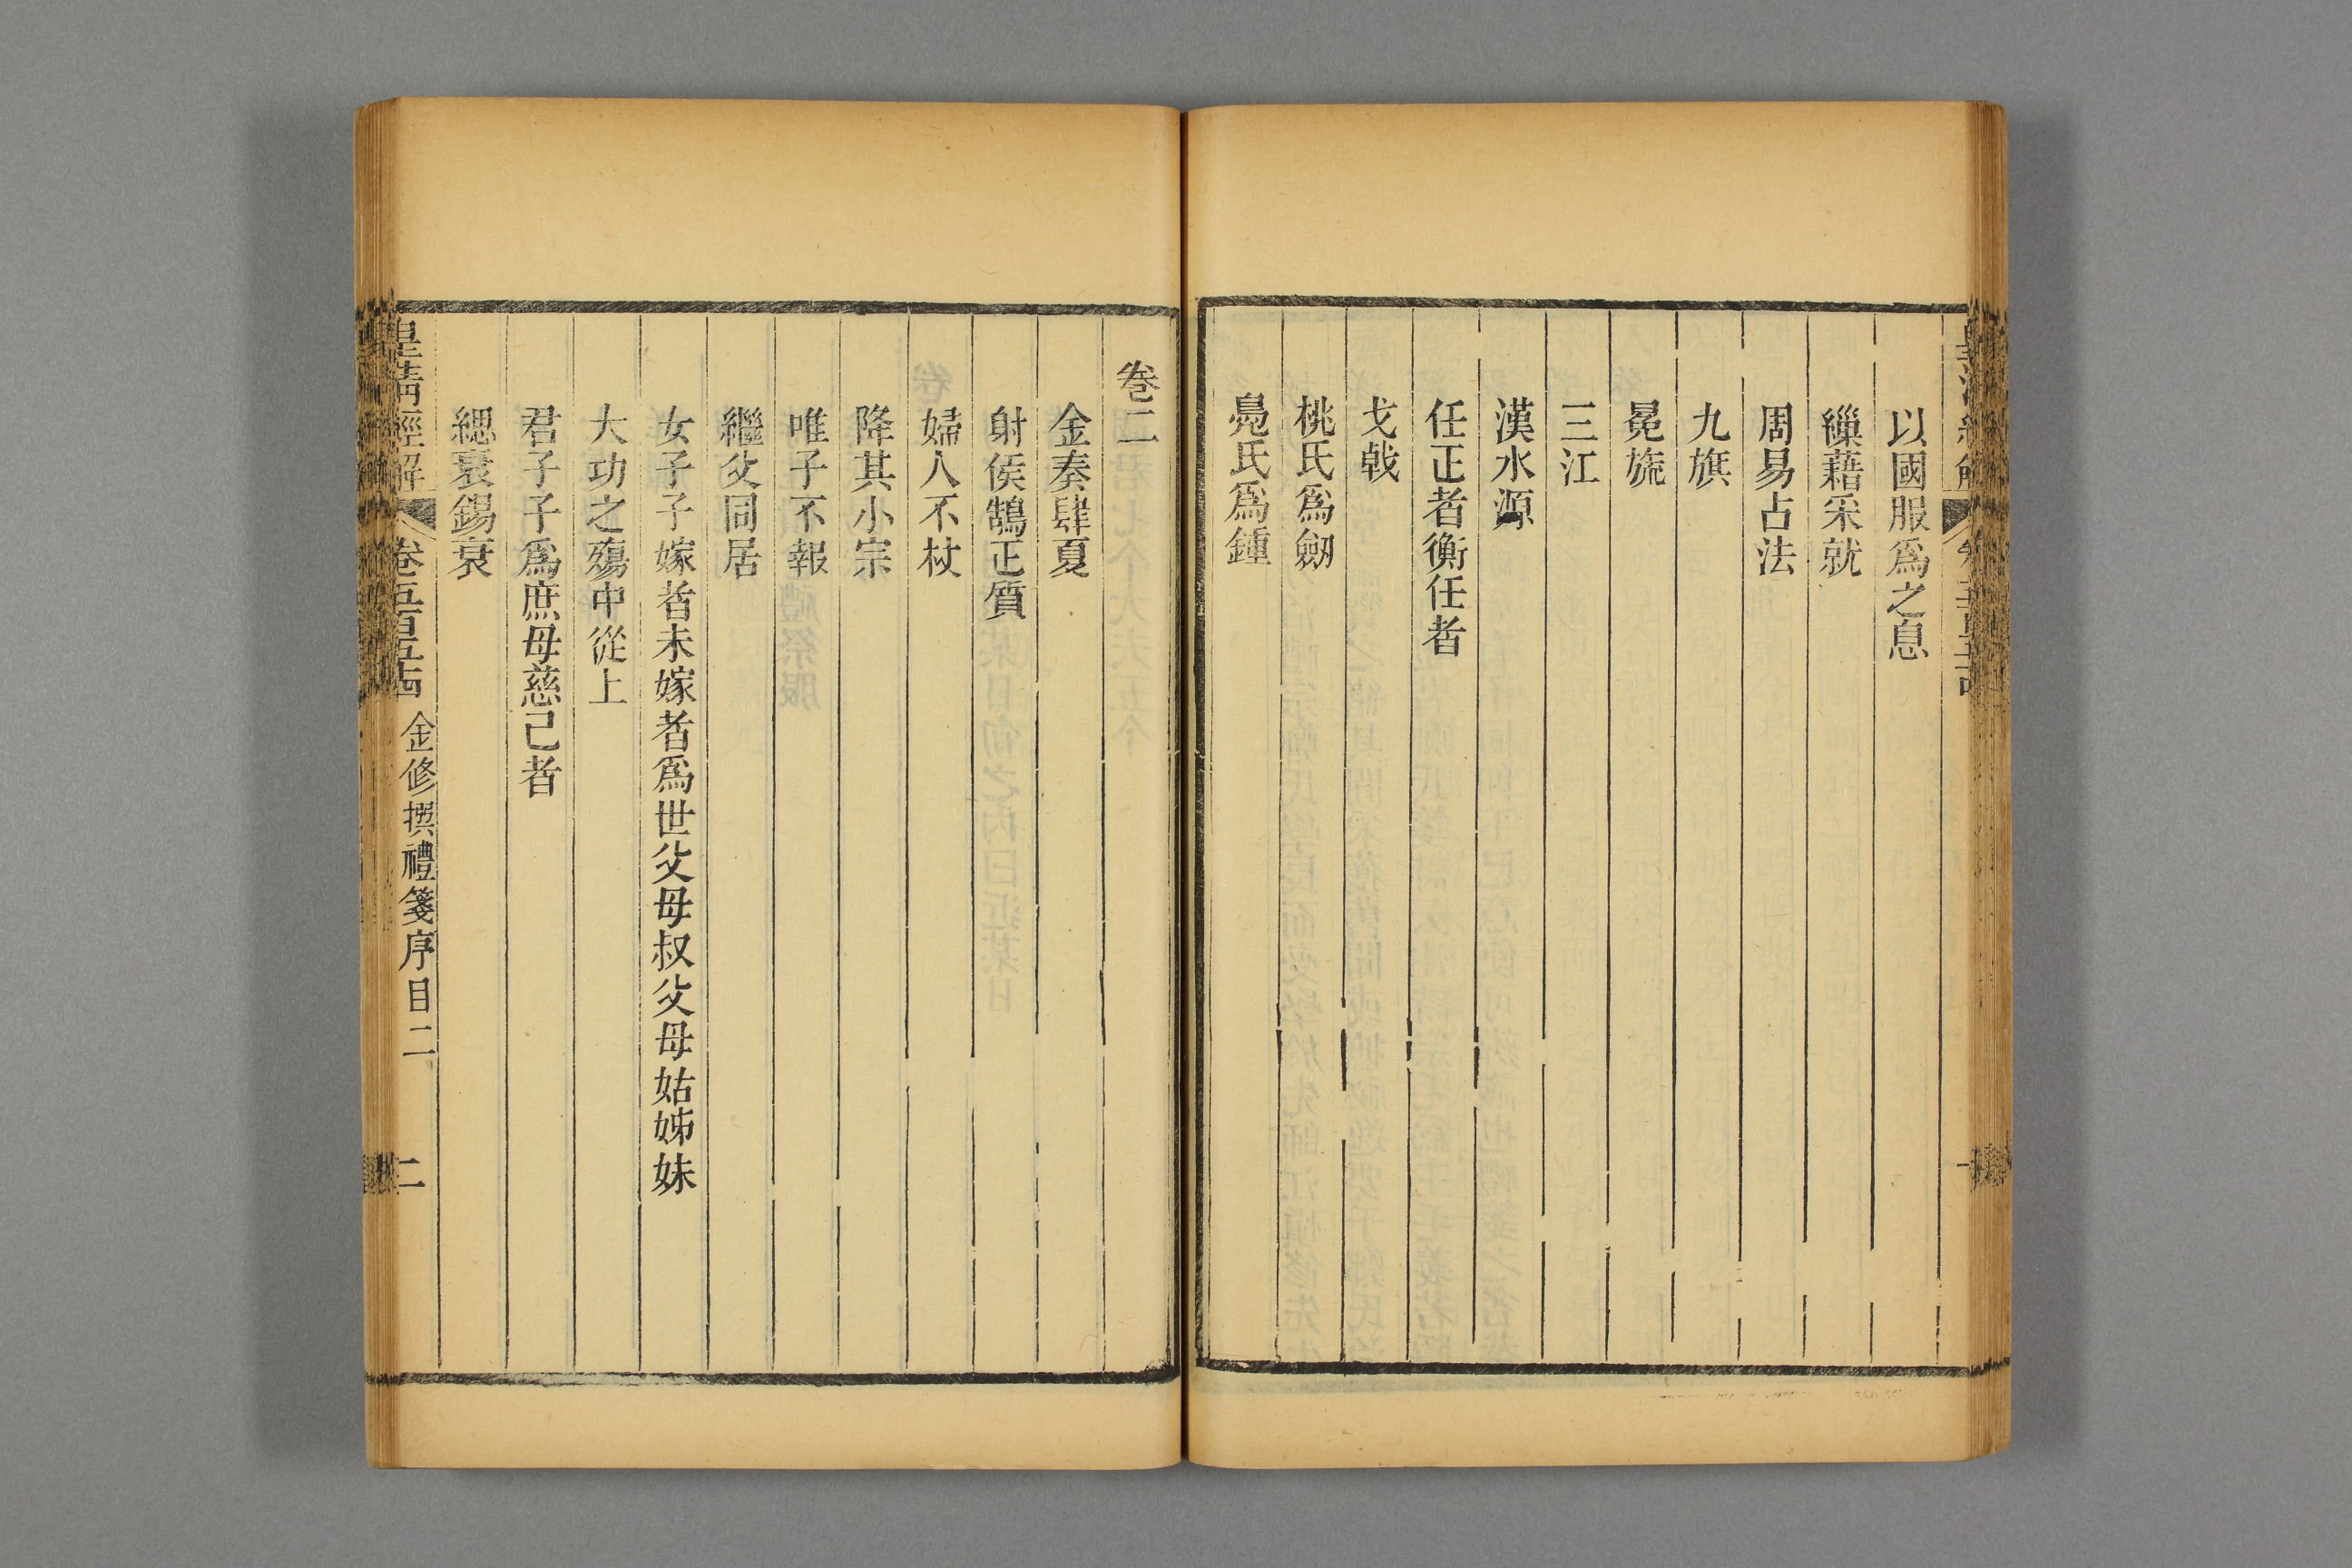 以國服爲之息
繅藉采就
周易占法
九旗
冕旒
三江
漢水源
任正者衡任者
戈戟
桃氏爲劒
鳧氏爲鍾
卷二
金奏肆夏
射侯鵠正質
婦人不杖
降其小宗
唯子不報
繼父同居
女子子嫁者未嫁者爲世父母叔父母姑姊妹
大功之殤中從上
君子子爲庶母慈己者
緦衰錫衰
皇清經解
卷五百五十四
金修撰禮箋序目二
二